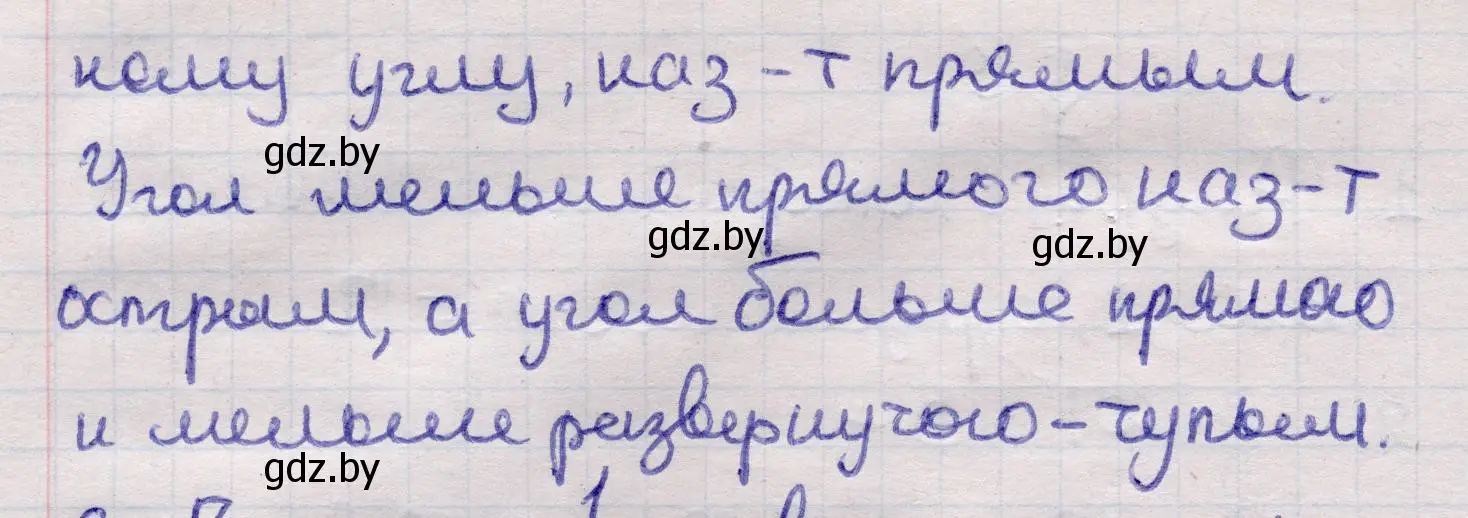 ному углу, наз-т прямым.
gdz.by
Угол меньше прямого наз-т
gdz.by
gdz.by
острым, а угол больше прямого
и меньше развернутого - тупым.
gdz.by